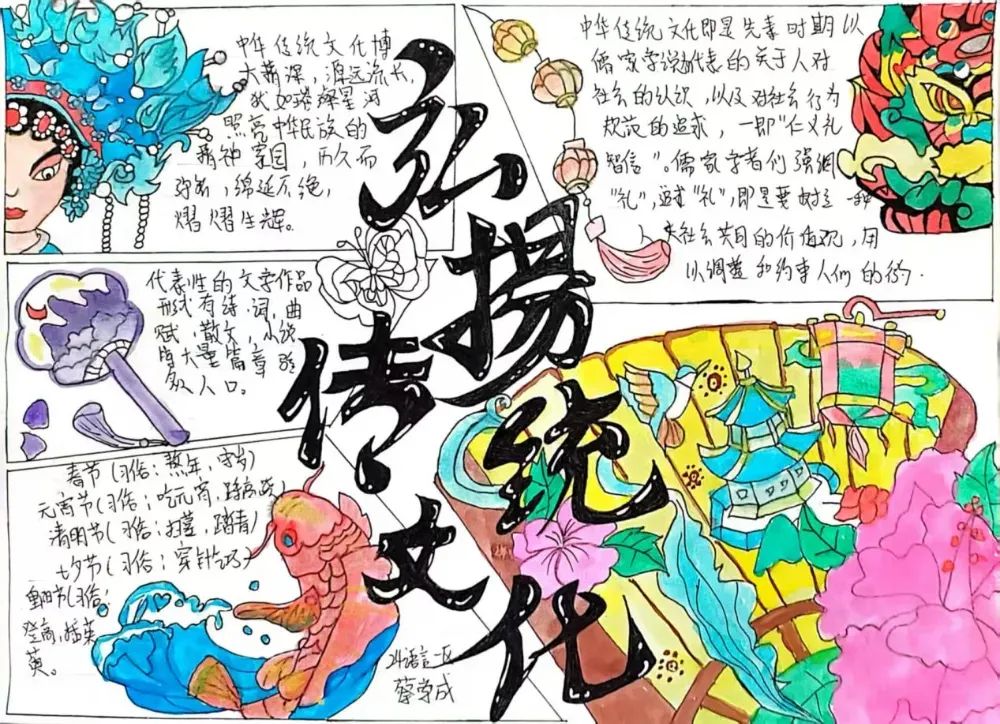 弘揚
传統
文化
中华传统文化博
大精深，源远流长，
犹如璀璨星河
照亮中华民族的
精神家园，历久而
弥新，绵延不绝，
熠熠生辉。
中华传统文化即是先秦时期以
儒家学说为代表的关于人对
社会的认识，以及对社会行为
规范的追求，一即“仁义礼
智信”。儒家学者们强调
“礼”，追求“礼”，即是要树立一种
人类社会共同的价值观，用
以调整和约束人们的行为.
代表性的文学作品
形式有诗.词，曲
赋，散文，小说
等大量篇章
人口。
春节(习俗：熬年，守岁)
元宵节(习俗；吃元宵，踩高跷)
清明节(习俗；扫墓，踏青)
七夕节(习俗；穿针乞巧)
重阳节(习俗：
登高，插茱
萸。
24语言一区